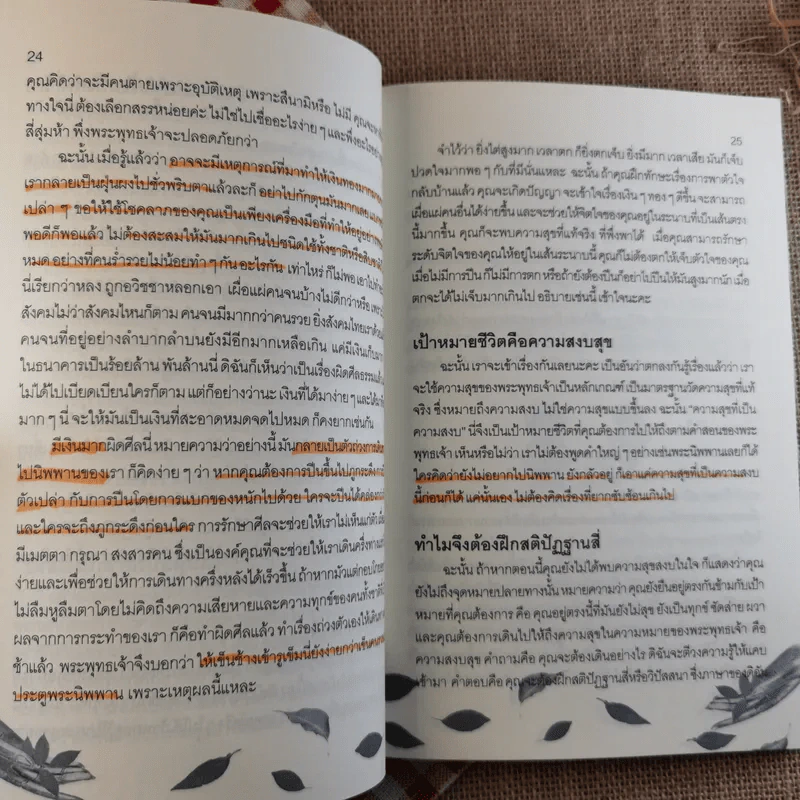 24
คุณคิดว่าจะมีคนตายเพราะอุบัติเหตุ เพราะสึนามิหรือ ไม่มี คุณจะ
ทางใจนี่ ต้องเลือกสรรหน่อยค่ะ ไม่ใช่ไปเชื่ออะไรง่าย ๆ และพึ่งอะไร
สี่สุ่มห้า พึ่งพระพุทธเจ้าจะปลอดภัยกว่า
ฉะนั้น เมื่อรู้แล้วว่า อาจจะมีเหตุการณ์ที่มาทำให้เงินทอง
เรากลายเป็นฝุ่นผงไปชั่วพริบตาแล้วละก็ อย่าไปกักตุนมันมาก
เปล่า ๆ ขอให้ใช้โชคลาภของคุณเป็นเพียงเครื่องมือที่ทำให้อยู่อย่าง
พอดีก็พอแล้ว ไม่ต้องสะสมให้มันมากเกินไปชนิดใช้ทั้งชาติหรือ
หมด อย่างที่คนร่ำรวยไม่น้อยทำ ๆ กัน อะไรกัน เท่าไหร่ ก็ไม่พอ เอาไป
นี่เรียกว่าหลง ถูกอวิชชาหลอกเอา เผื่อแผ่คนจนบ้างไม่ดีกว่าหรือ
สังคมไม่ว่าสังคมไหนก็ตาม คนจนมีมากกว่าคนรวย ยิ่งสังคมไทยเรา
คนจนที่อยู่อย่างลำบากลำบนยังมีอีกมากเหลือเกิน แค่มีเงินเก็บ
ในธนาคารเป็นร้อยล้าน พันล้านนี่ ดิฉันก็เห็นว่าเป็นเรื่องผิดศีลธรรมแล้ว
ไม่ได้ไปเบียดเบียนใครก็ตาม แต่ก็อย่างว่านะ เงินที่ได้มาง่าย ๆ และได้มา
มาก ๆ นี่ จะให้มันเป็นเงินที่สะอาดหมดจดไปหมด ก็คงยากเช่นกัน
มีเงินมากผิดศีลนี่ หมายความว่าอย่างนี้ มันกลายเป็นตัวถ่วงการเดิน
ไปนิพพานของเรา ก็คิดง่าย ๆ ว่า หากคุณต้องการปีนขึ้นไปภูกระดึง
ตัวเปล่า กับการปีนโดยการแบกของหนักไปด้วย ใครจะปีนได้คล่อง
และใครจะถึงภูกระดึงก่อนใคร การรักษาศีลจะช่วยให้เราไม่เห็นแก่ตัว
มีเมตตา กรุณา สงสารคน ซึ่งเป็นองค์คุณที่จะช่วยให้เราเดินครึ่งทาง
ง่ายและเพื่อช่วยให้การเดินทางครึ่งหลังได้เร็วขึ้น ถ้าหากมัวแต่กอบโกย
ไม่ลืมหูลืมตาโดยไม่คิดถึงความเสียหายและความทุกข์ของคนทั้งชาติ
ผลจากการกระทำของเรา ก็คือทำผิดศีลแล้ว ทำเรื่องถ่วงตัวเองให้เดิน
ช้าแล้ว พระพุทธเจ้าจึงบอกว่า ให้เข็นช้างเข้ารูเข็มนี่ยังง่ายกว่าเข็น
ประตูพระนิพพาน เพราะเหตุผลนี้แหละ
25
จำไว้ว่า ยิ่งไต่สูงมาก เวลาตก ก็ยิ่งตกเจ็บ ยิ่งมีมาก เวลาเสีย มันก็เจ็บ
ปวดใจมากพอ ๆ กับที่มีนั่นแหละ ฉะนั้น ถ้าคุณฝึกทักษะเรื่องการพาตัวใจ
กลับบ้านแล้ว คุณจะเกิดปัญญา จะเข้าใจเรื่องเงิน ๆ ทอง ๆ ดีขึ้น จะสามารถ
เผื่อแผ่คนอื่นได้ง่ายขึ้น และจะช่วยให้จิตใจของคุณอยู่ในระนาบที่เป็นเส้นตรง
นี้มากขึ้น คุณก็จะพบความสุขที่แท้จริง ที่พึ่งพาได้ เมื่อคุณสามารถรักษา
ระดับจิตใจของคุณให้อยู่ในเส้นระนาบนี้ คุณก็ไม่ต้องตกให้เจ็บตัวใจของคุณ
เมื่อไม่มีการปีน ก็ไม่มีการตก หรือถ้ายังต้องปีนก็อย่าไปปีนให้มันสูงมากนัก เมื่อ
ตกจะได้ไม่เจ็บมากเกินไป อธิบายเช่นนี้ เข้าใจนะคะ
เป้าหมายชีวิตคือความสงบสุข
ฉะนั้น เราจะเข้าเรื่องกันเลยนะคะ เป็นอันว่าตกลงกันรู้เรื่องแล้วว่า เรา
จะใช้ความสุขของพระพุทธเจ้าเป็นหลักเกณฑ์ เป็นมาตรฐานวัดความสุขที่แท้
จริง ซึ่งหมายถึงความสงบ ไม่ใช่ความสุขแบบขึ้นลง ฉะนั้น “ความสุขที่เป็น
ความสงบ” นี่จึงเป็นเป้าหมายชีวิตที่คุณต้องการไปให้ถึงตามคำสอนของพระ
พุทธเจ้า เห็นหรือไม่ว่า เราไม่ต้องพูดคำใหญ่ ๆ อย่างเช่นพระนิพพานเลยก็ได้
ใครคิดว่ายังไม่อยากไปนิพพาน ยังกลัวอยู่ ก็เอาแค่ความสุขที่เป็นความสงบ
นี้ก่อนก็ได้ แค่นั้นเอง ไม่ต้องคิดเรื่องที่ยากซับซ้อนเกินไป
ทำไมจึงต้องฝึกสติปัฏฐานสี่
ฉะนั้น ถ้าหากตอนนี้คุณยังไม่ได้พบความสุขสงบในใจ ก็แสดงว่าคุณ
ยังไม่ถึงจุดหมายปลายทางนั้น หมายความว่า คุณยังยืนอยู่ตรงกันข้ามกับเป้า
หมายที่คุณต้องการ คือ คุณอยู่ตรงนี้ที่มันยังไม่สุข ยังเป็นทุกข์ ซัดส่าย ผวา
และคุณต้องการเดินไปให้ถึงความสุขในความหมายของพระพุทธเจ้า คือ
ความสงบสุข คำถามคือ คุณจะต้องเดินอย่างไร ดิฉันจะตีวงความรู้ให้แคบ
เข้ามา คำตอบคือ คุณจะต้องฝึกสติปัฏฐานสี่หรือวิปัสสนา ซึ่งภาษาของดิฉัน